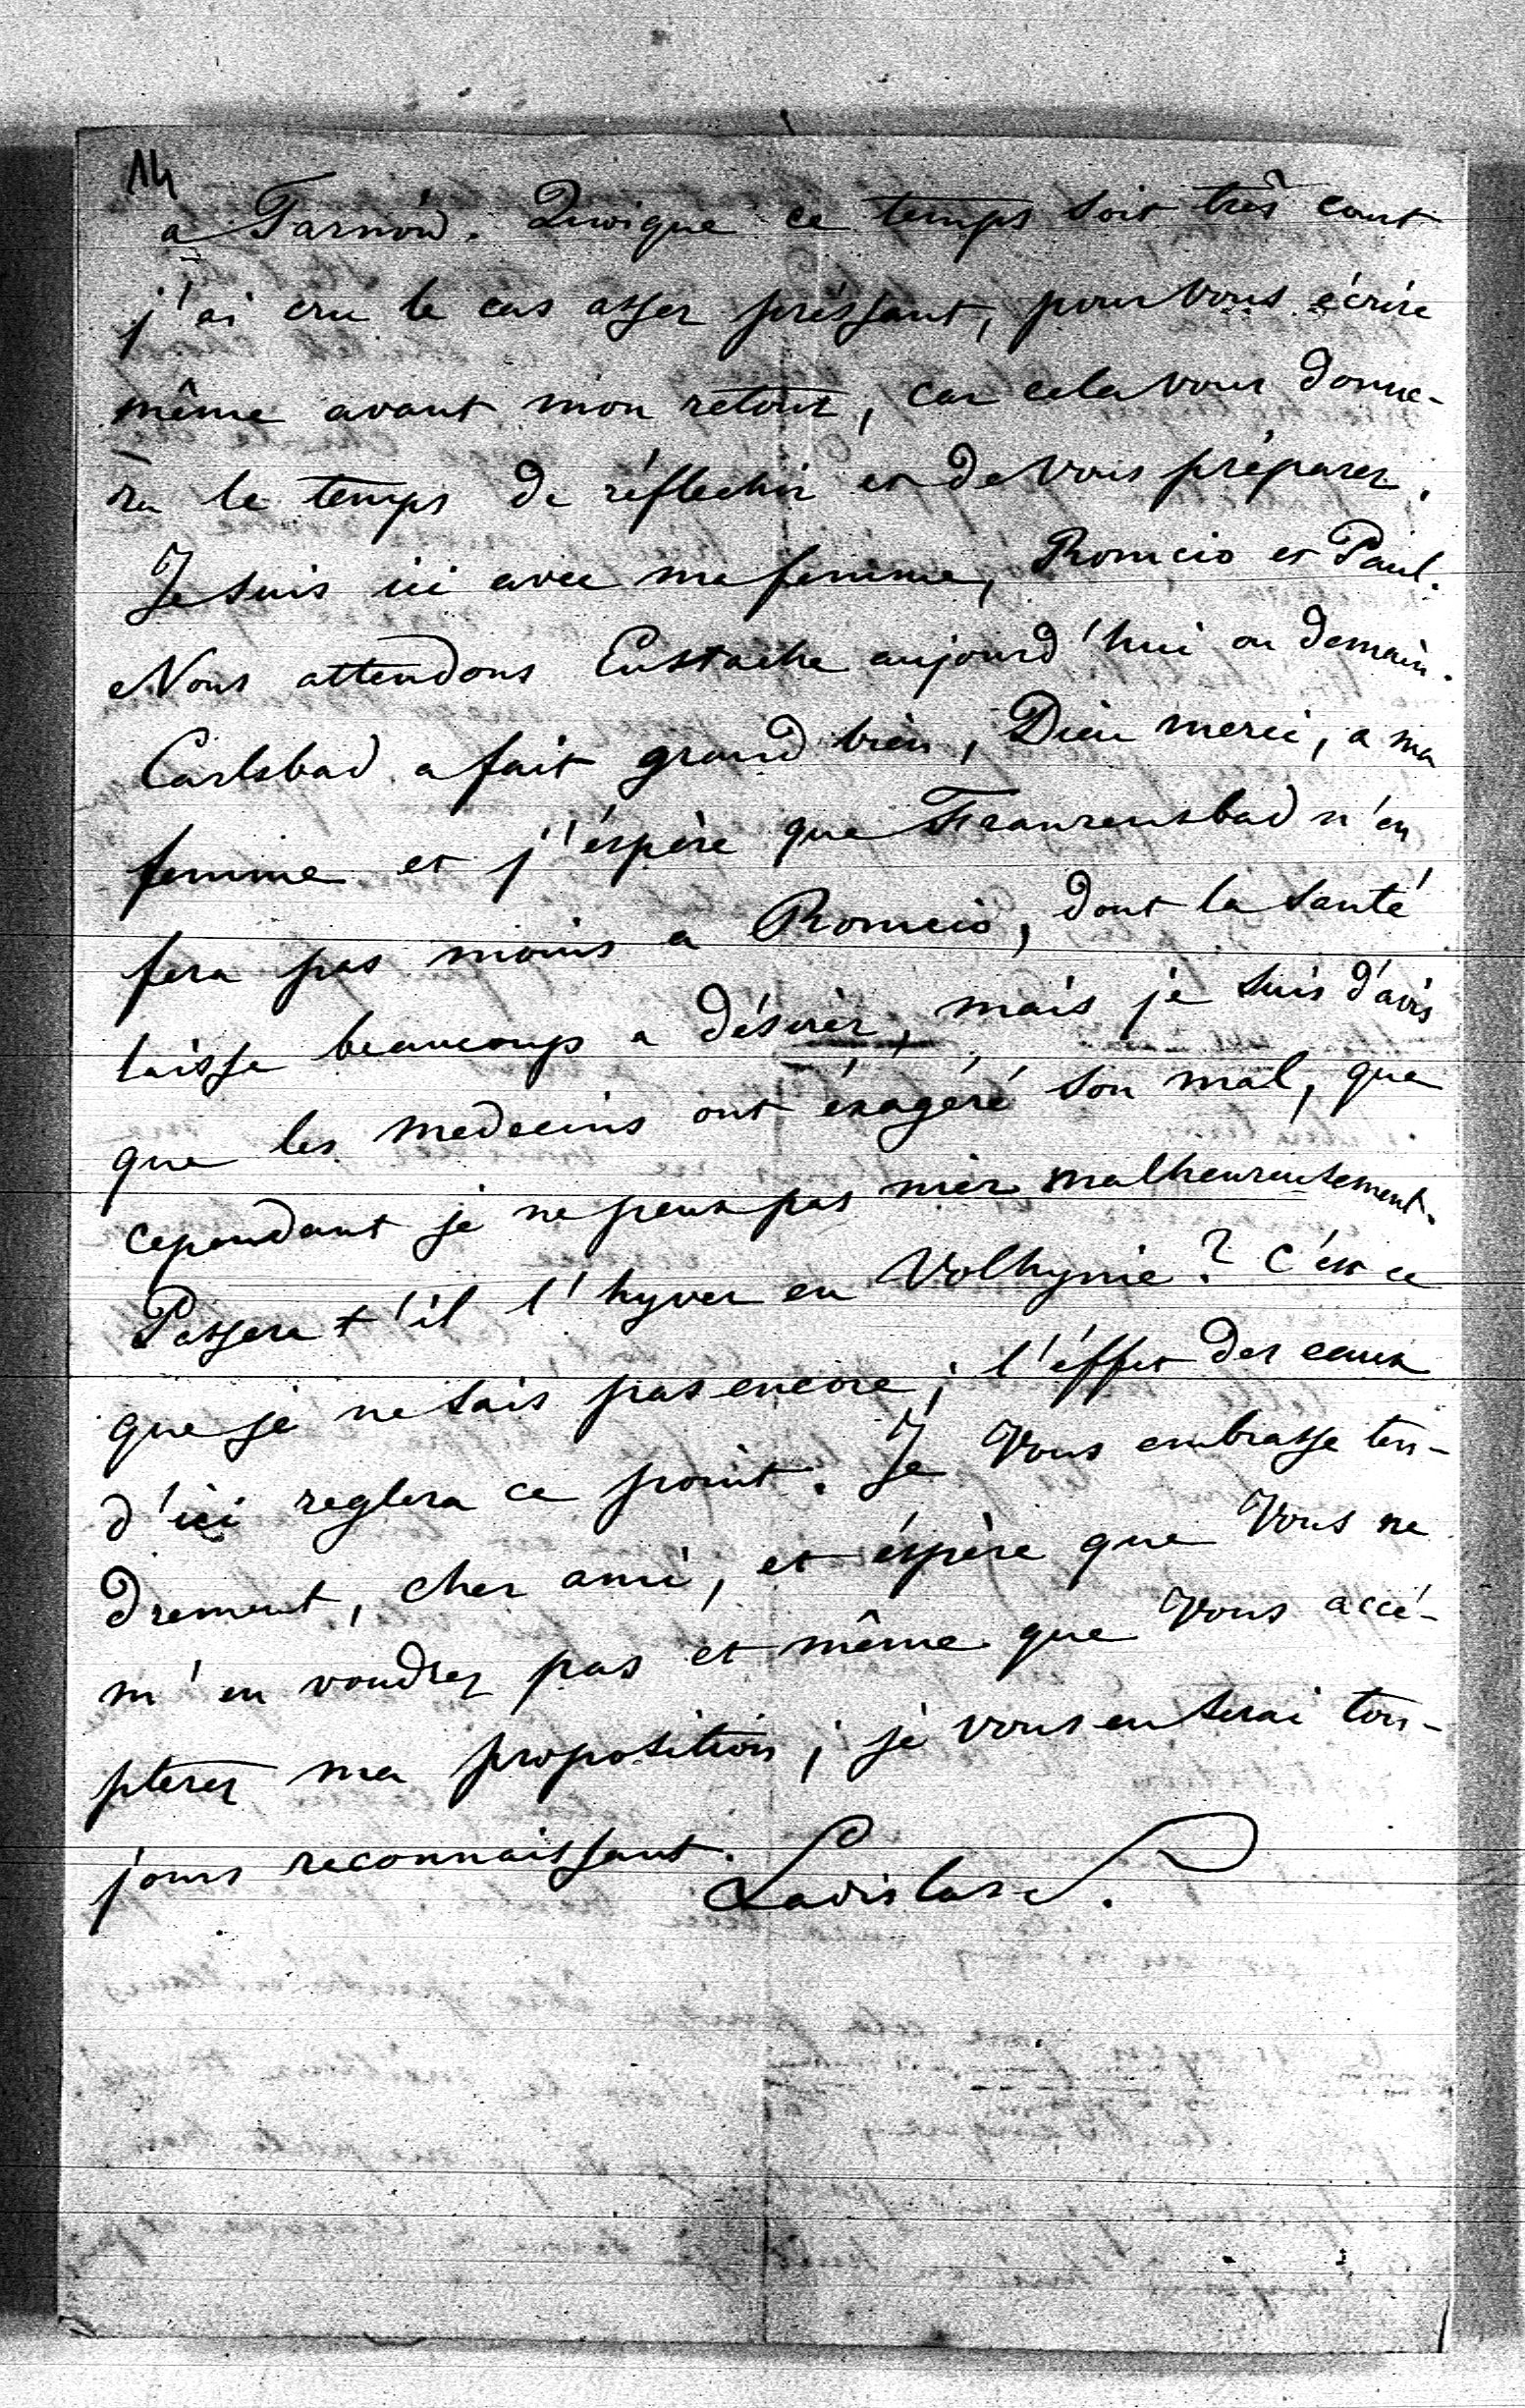 14
a Tarnów. Quoique ce temps soit très court
j'ai cru le cas assez préssant, pour vous écrire
même avant mon retour, car cela vous donne-
ra le temps de réflechir et de vous préparer.
Je suis ici avec ma femme, Romcio et Paul.
Nous attendons Eustache aujourd'hui ou demain.
Carlsbad a fait grand bien, Dieu merci, a ma
femme et j'éspère que Franzensbad n'en
fera pas moins a Romcio, dont la santé
laisse beaucoup a désirer, mais je suis d'avis
que les medecins ont éxagéré son mal, que
cependant je ne peux pas nier malheureusement.
Passera t'il l'hyver en Volhynie? C'est ce
que je ne sais pas encore; l'éffet des eaux
d'ici reglera ce point. Je Vous embrasse ten-
drement, cher ami, et éspère que Vous ne
m'en voudrez pas et même que Vous accé-
pterez ma proposition; je vous en serai tou-
jours reconnaissant.
Ladislas S.